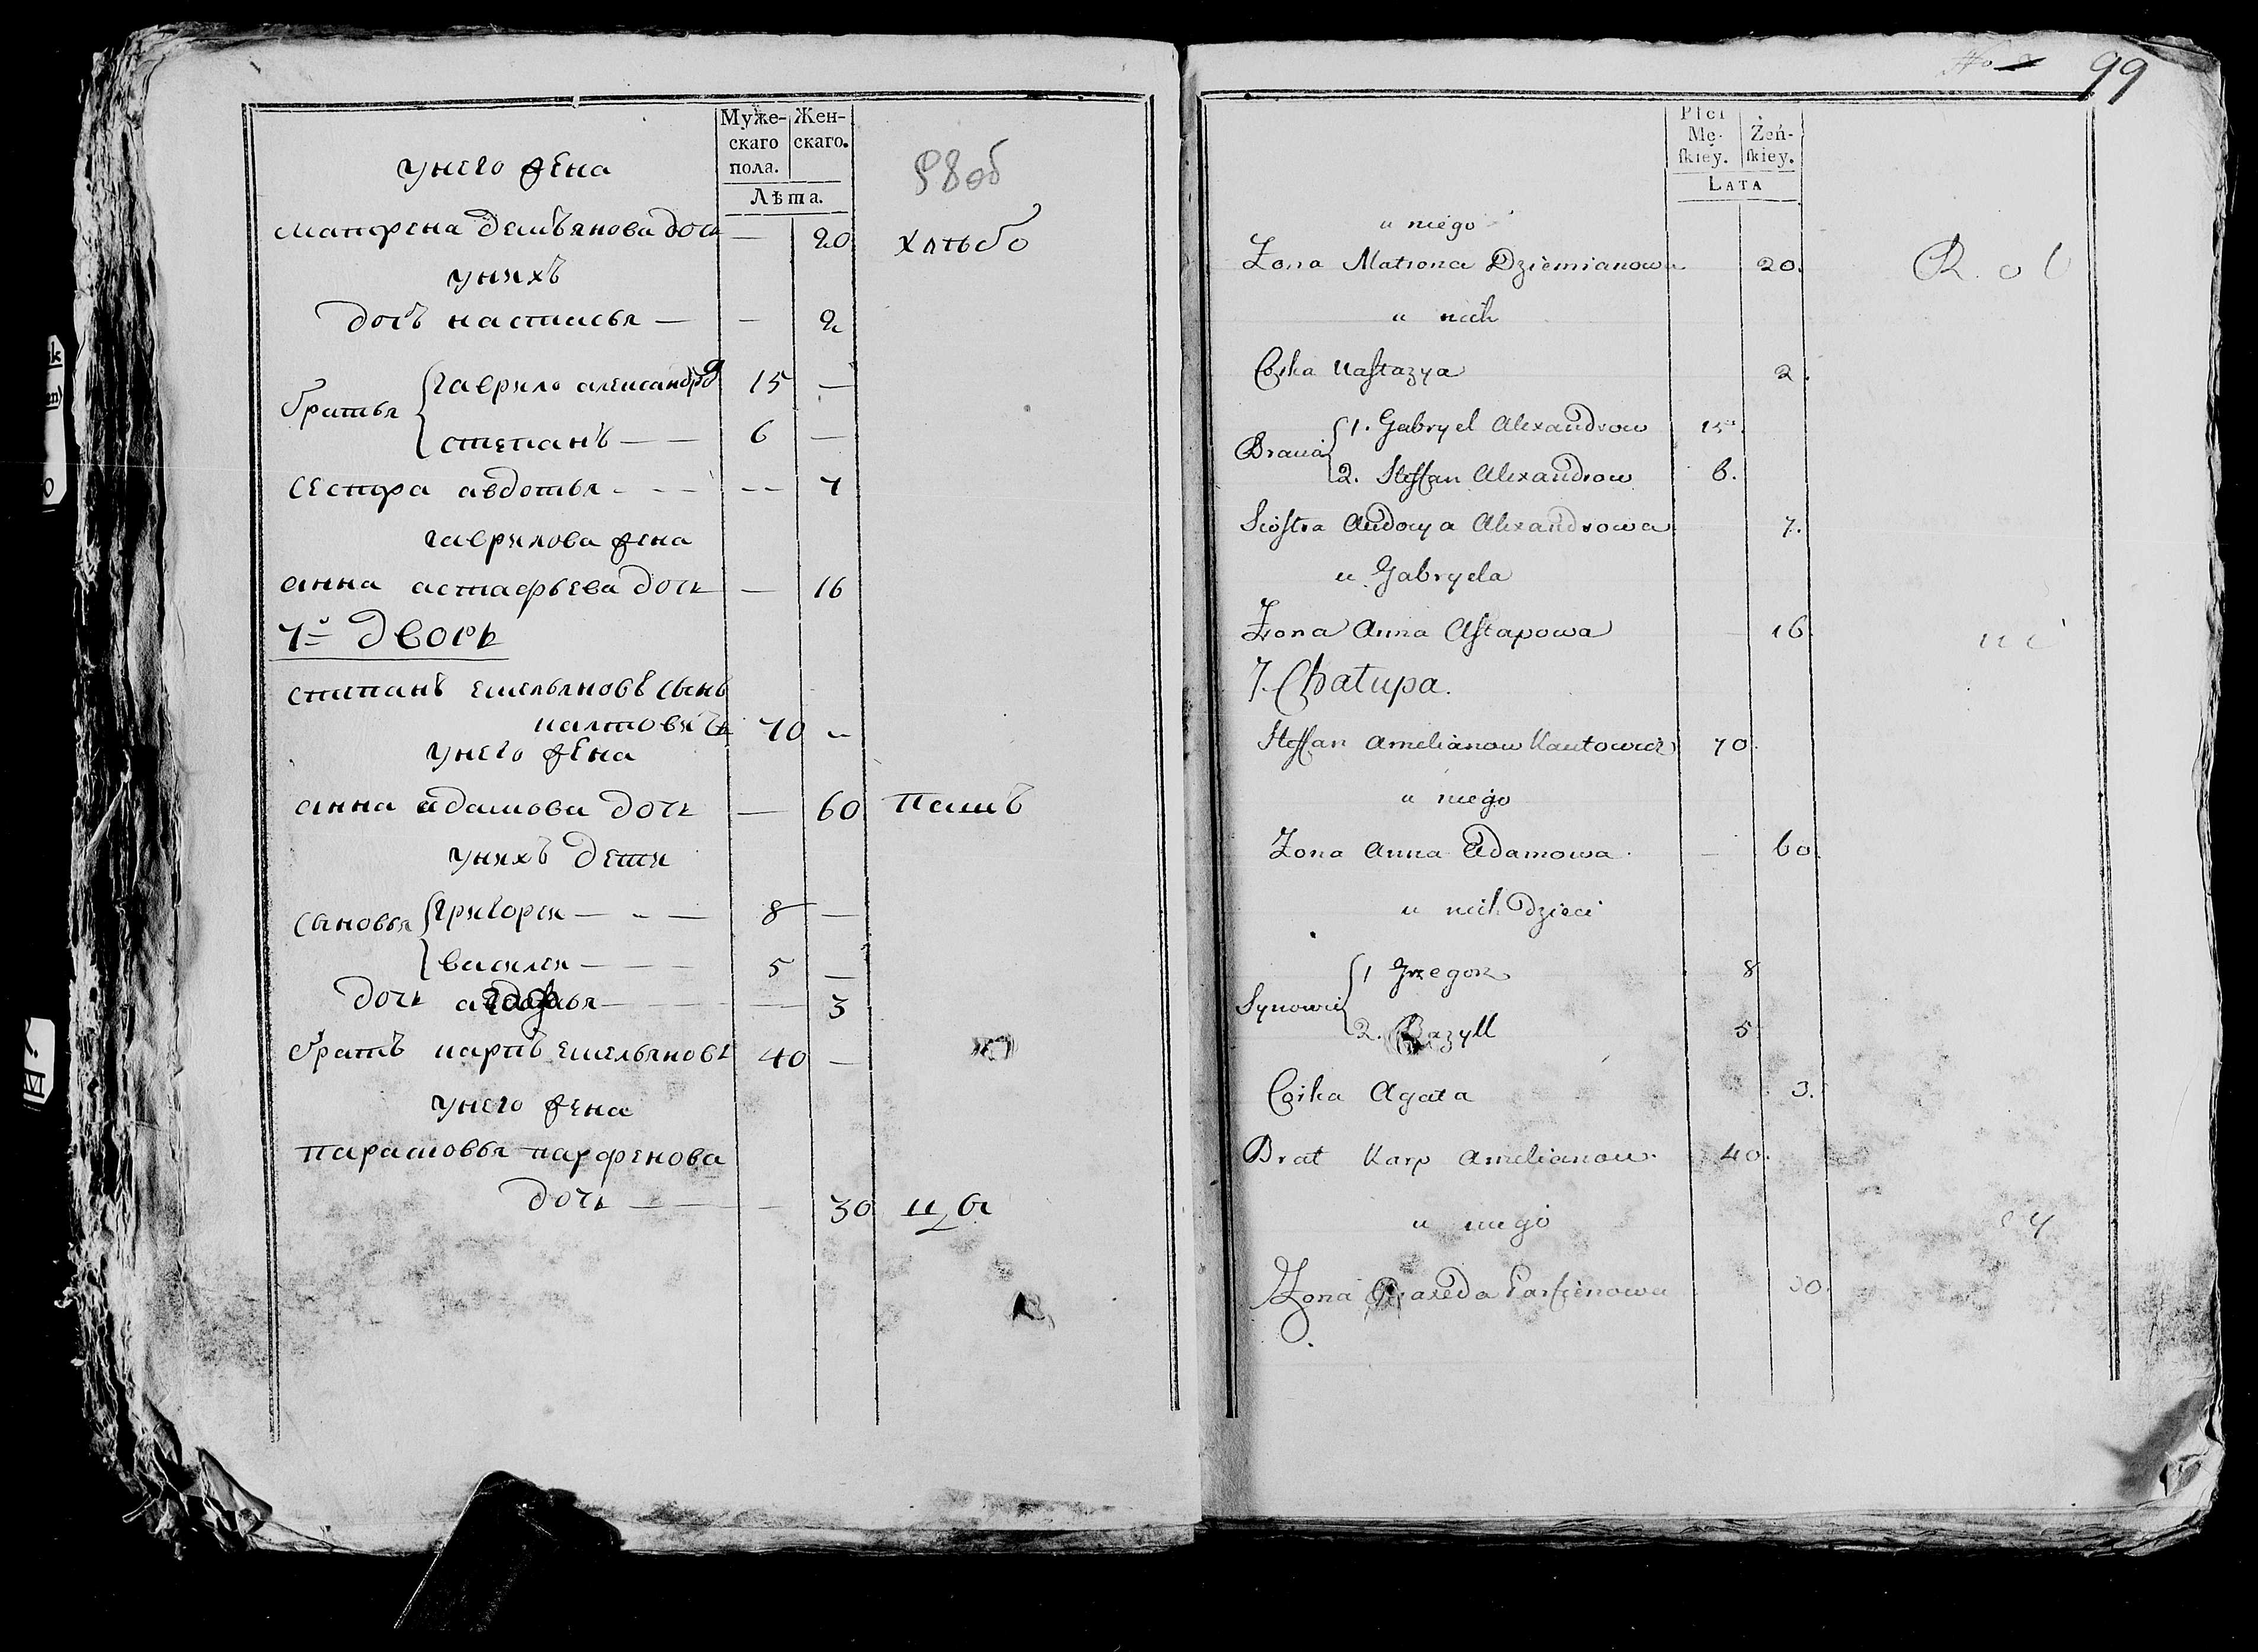 Муже-
скаго
пола.
Жен-
скаго.
Лѣта.
98об
унего жена
матрена демьянова доч — 20 хлѣбо
унихъ
дочъ настасья — — 2
братья
гаврило александров 15 —
степанъ — — 6 —
сестра авдотья - - - -- 7
гаврилова жена
анна астафьева дочь — 16
7й дворъ
степанъ емельяновъ сынъ
калтовичъ 70 -
унего жена
анна адамова дочь — 60 пашъ
унихъ дети
сыновья
григореи — - — 8 —
василеи — — — 5 —
дочь — — — — 3
братъ карпъ емельяновъ 40 —
унего жена
парасковья парфенова
дочь — — - 30
99
Płci
Mę-
ſkiey.
Żeń-
ſkiey.
Lata
u niego
Zona Matrona Dziemianowa 20.
u nich
Corka Naſtazya 2.
Bracia
1. Gabryel Alexandrow 15.
2. Steffan Alexandrow 6.
Sioſtra Audocya Alexandrowa 7.
u Gabryela
Zona Anna Aſtapowa 16.
7. Chałupa.
Steffan Amelianow Kautowicz 70.
u niego
Zona Anna Adamowa — 60.
u nich Dzieci
Synowie
1 Grzegorz 8
2. Bazyll 5
Corka Agata 3.
Brat Karp Amelianow. 40.
u niego
Zona Parfienowa 30.